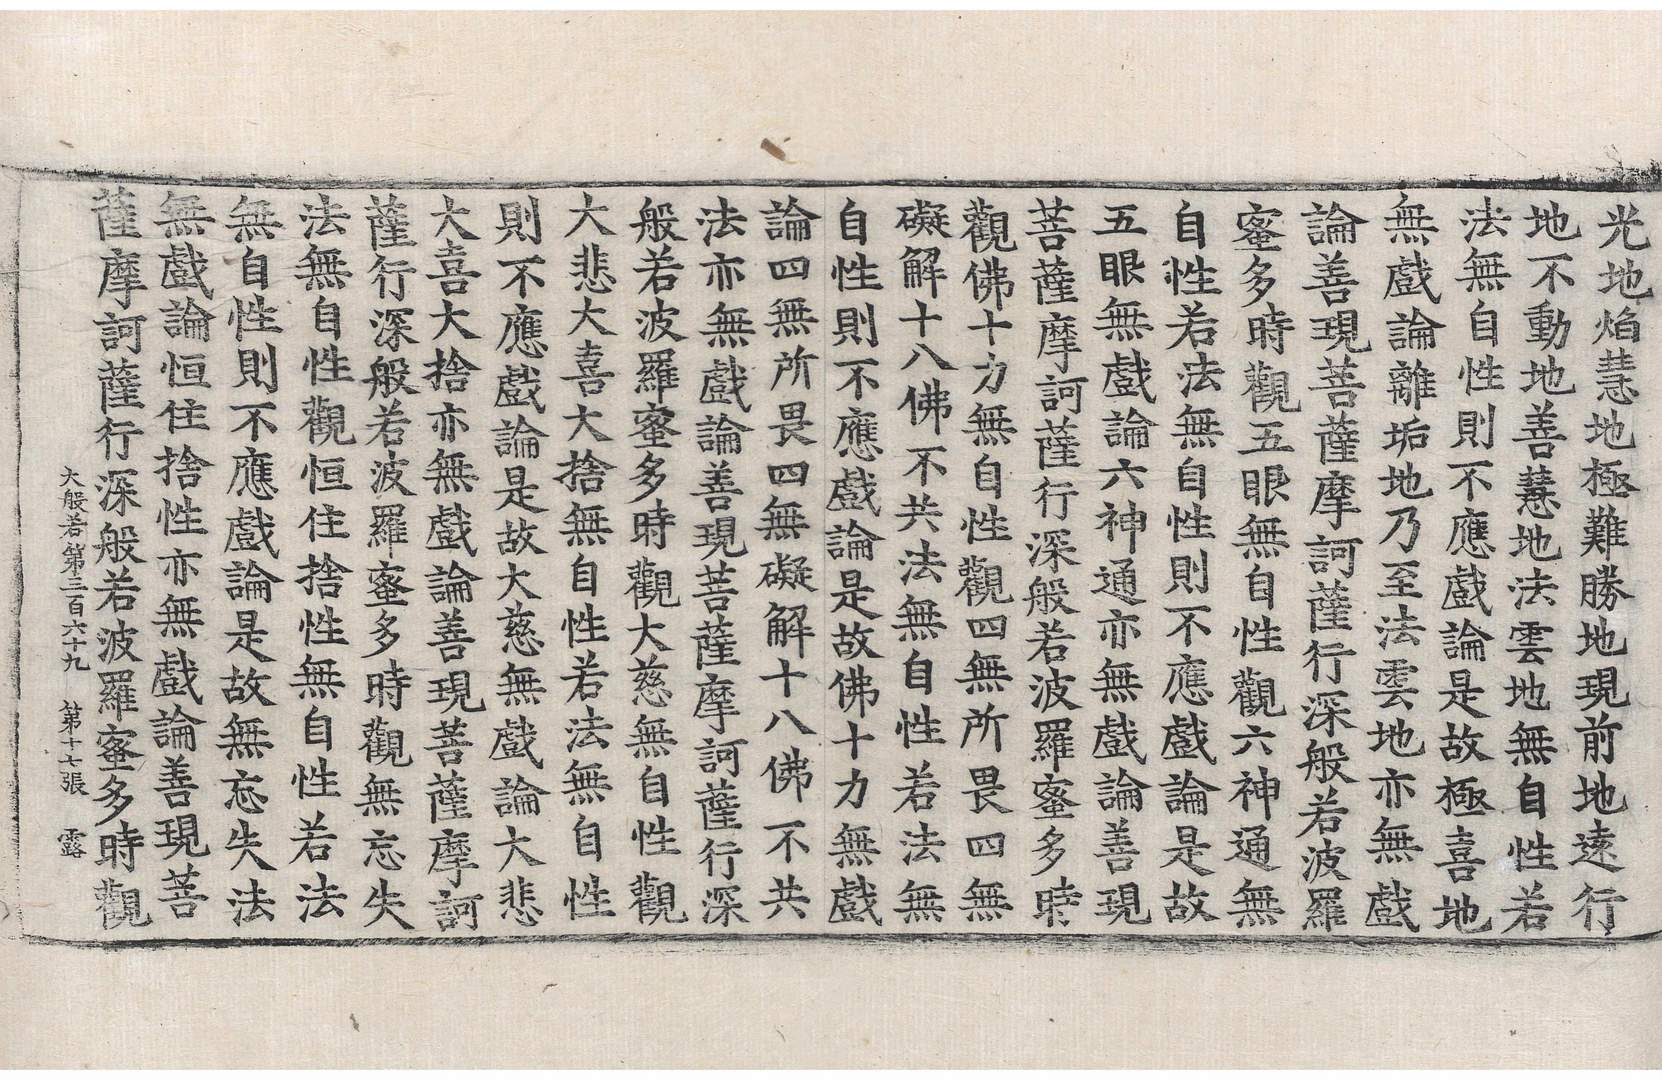 光地焰慧地極難勝地現前地遠行
地不動地善慧地法雲地無自性若
法無自性則不應戲論是故極喜地
無戲論離垢地乃至法雲地亦無戲
論善現菩薩摩訶薩行深般若波羅
蜜多時觀五眼無自性觀六神通無
自性若法無自性則不應戲論是故
五眼無戲論六神通亦無戲論善現
菩薩摩訶薩行深般若波羅蜜多時
觀佛十力無自性觀四無所畏四無
礙解十八佛不共法無自性若法無
自性則不應戲論是故佛十力無戲
論四無所畏四無礙解十八佛不共
法亦無戲論善現菩薩摩訶薩行深
般若波羅蜜多時觀大慈無自性觀
大悲大喜大捨無自性若法無自性
則不應戲論是故大慈無戲論大悲
大喜大捨亦無戲論善現菩薩摩訶
薩行深般若波羅蜜多時觀無忘失
法無自性觀恒住捨性無自性若法
無自性則不應戲論是故無忘失法
無戲論恒住捨性亦無戲論善現菩
薩摩訶薩行深般若波羅蜜多時觀
大般若第三百六十九　第十七張　露